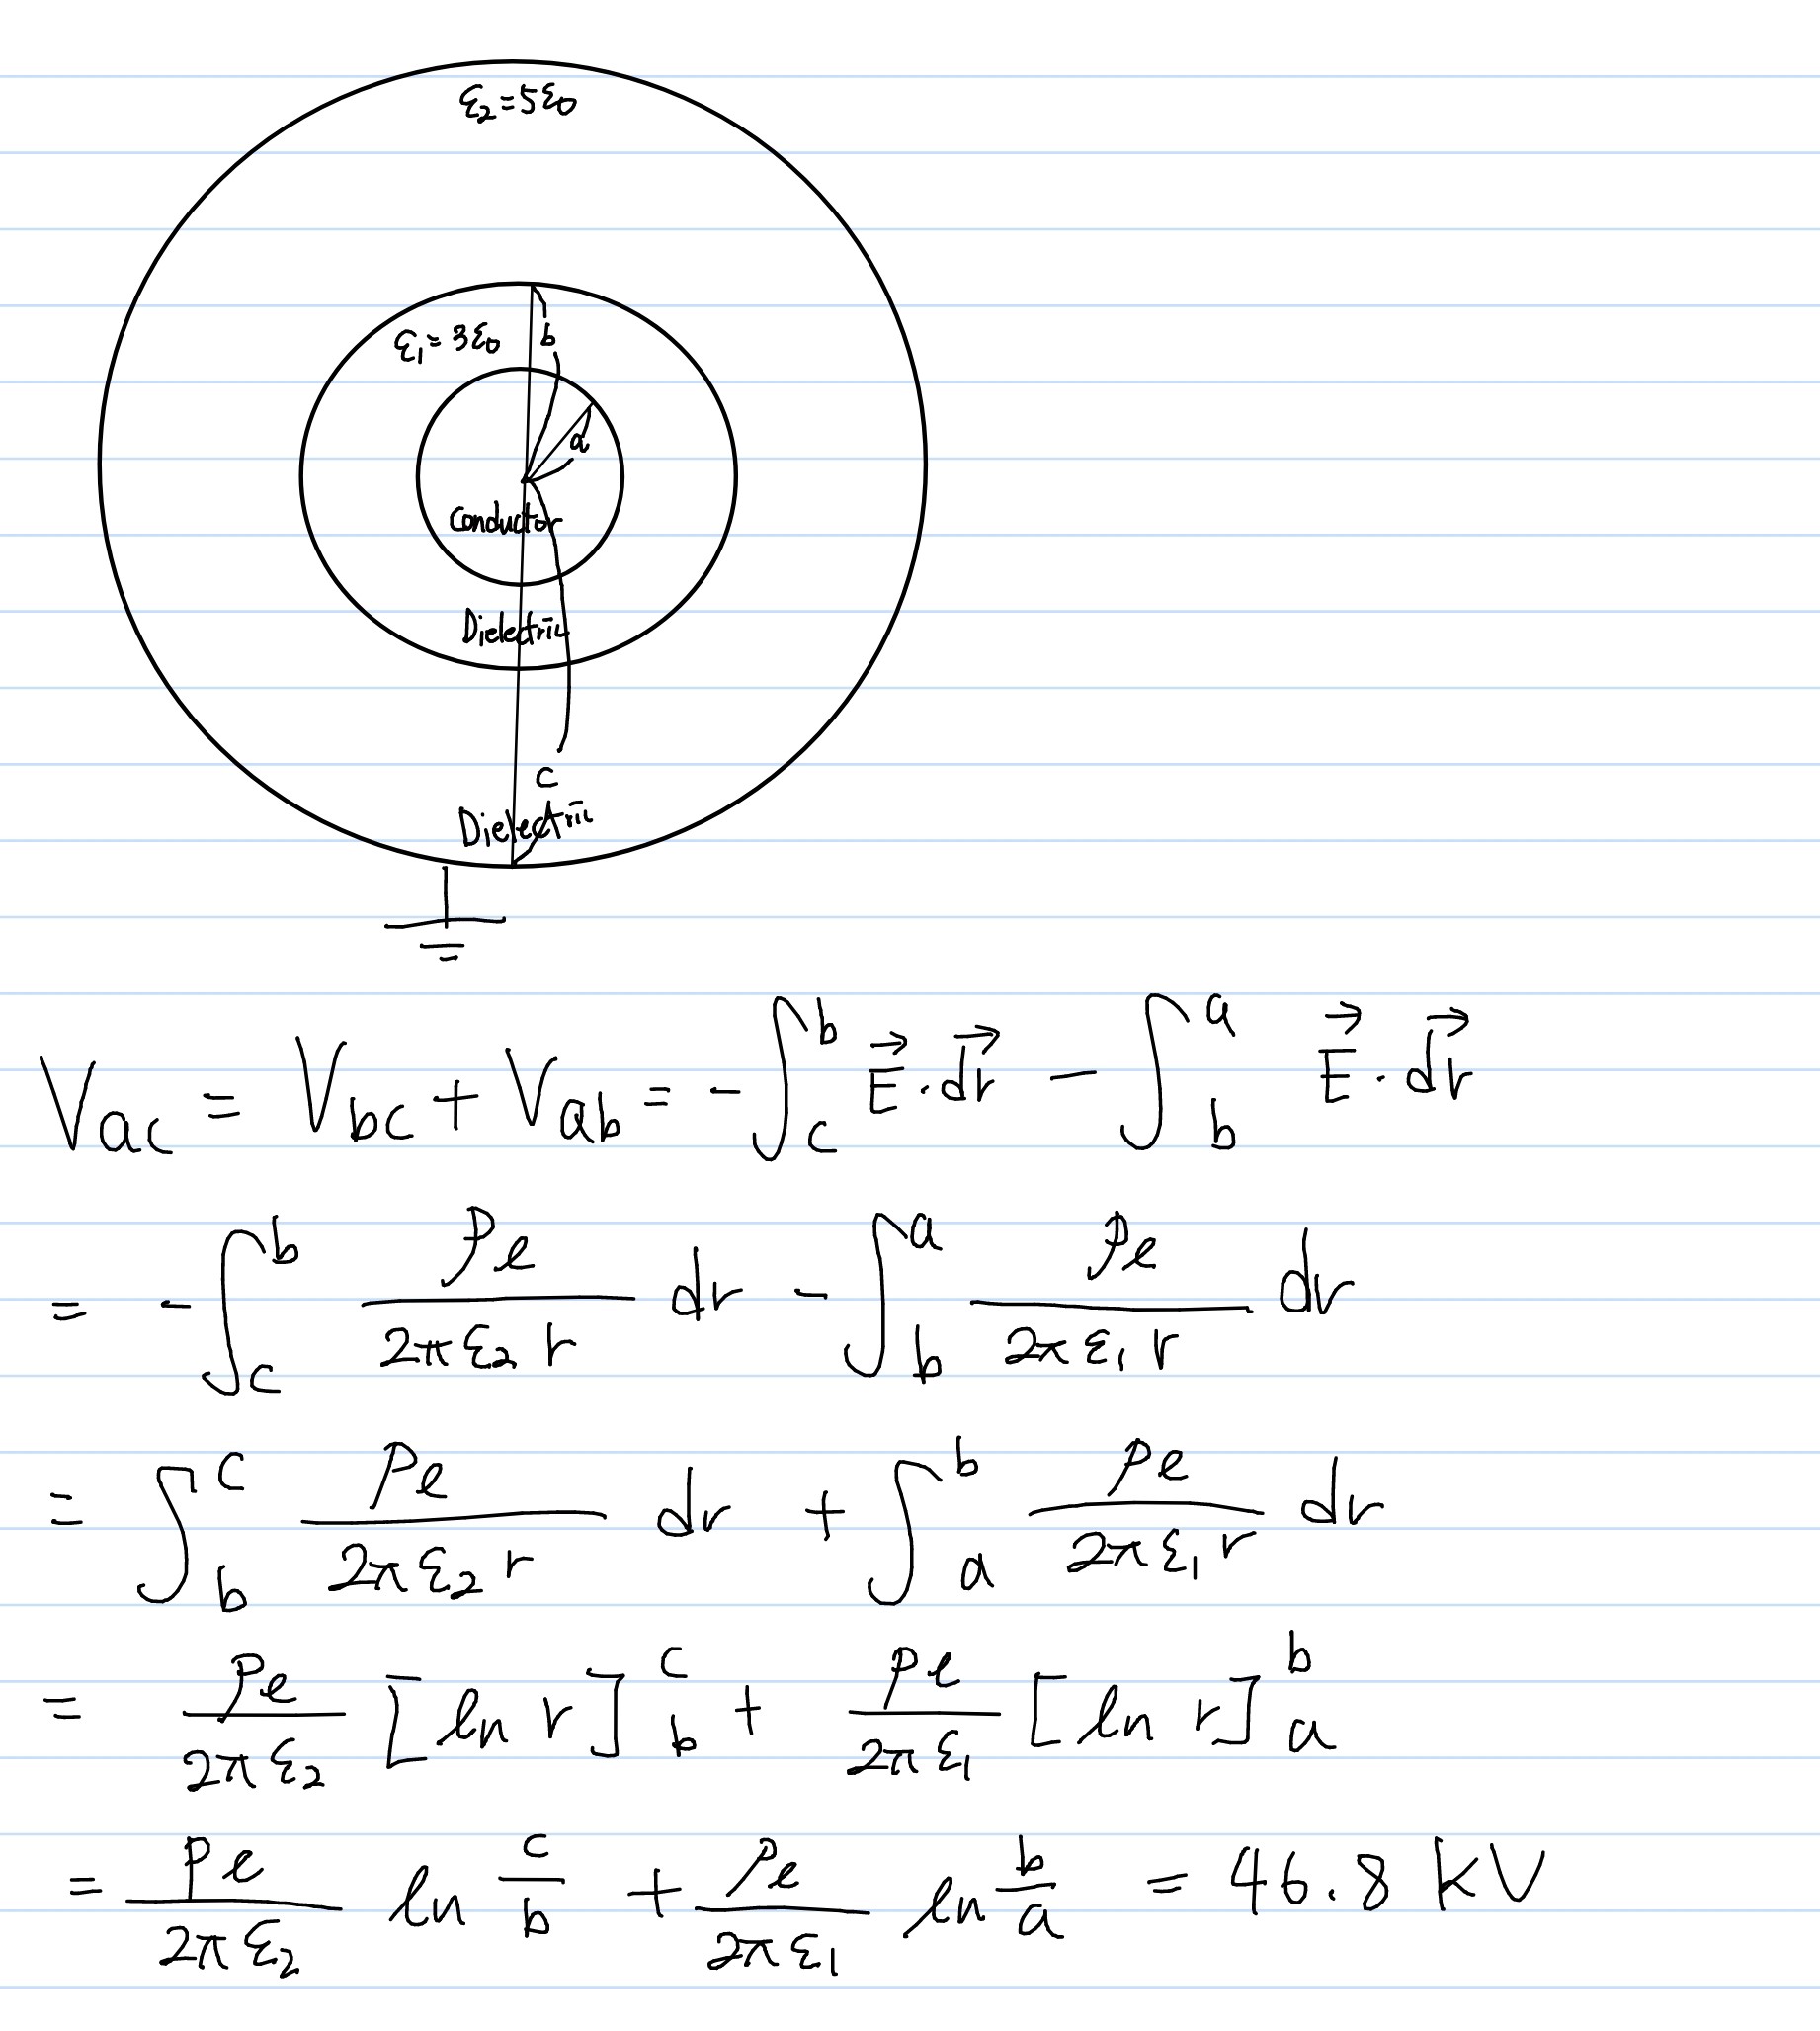 ε₂=5ε₀
ε₁=3ε₀
b
a
Conductor
Dielectric
c
Dielectric
V_ac = V_bc + V_ab = -∫_c^b E⃗·dr⃗ - ∫_b^a E⃗·dr⃗
= -∫_c^b ρℓ/(2πε₂r) dr - ∫_b^a ρℓ/(2πε₁r) dr
= ∫_b^c ρℓ/(2πε₂r) dr + ∫_a^b ρℓ/(2πε₁r) dr
= ρℓ/(2πε₂) [ln r]_b^c + ρℓ/(2πε₁) [ln r]_a^b
= ρℓ/(2πε₂) ln c/b + ρℓ/(2πε₁) ln b/a = 46.8 kV